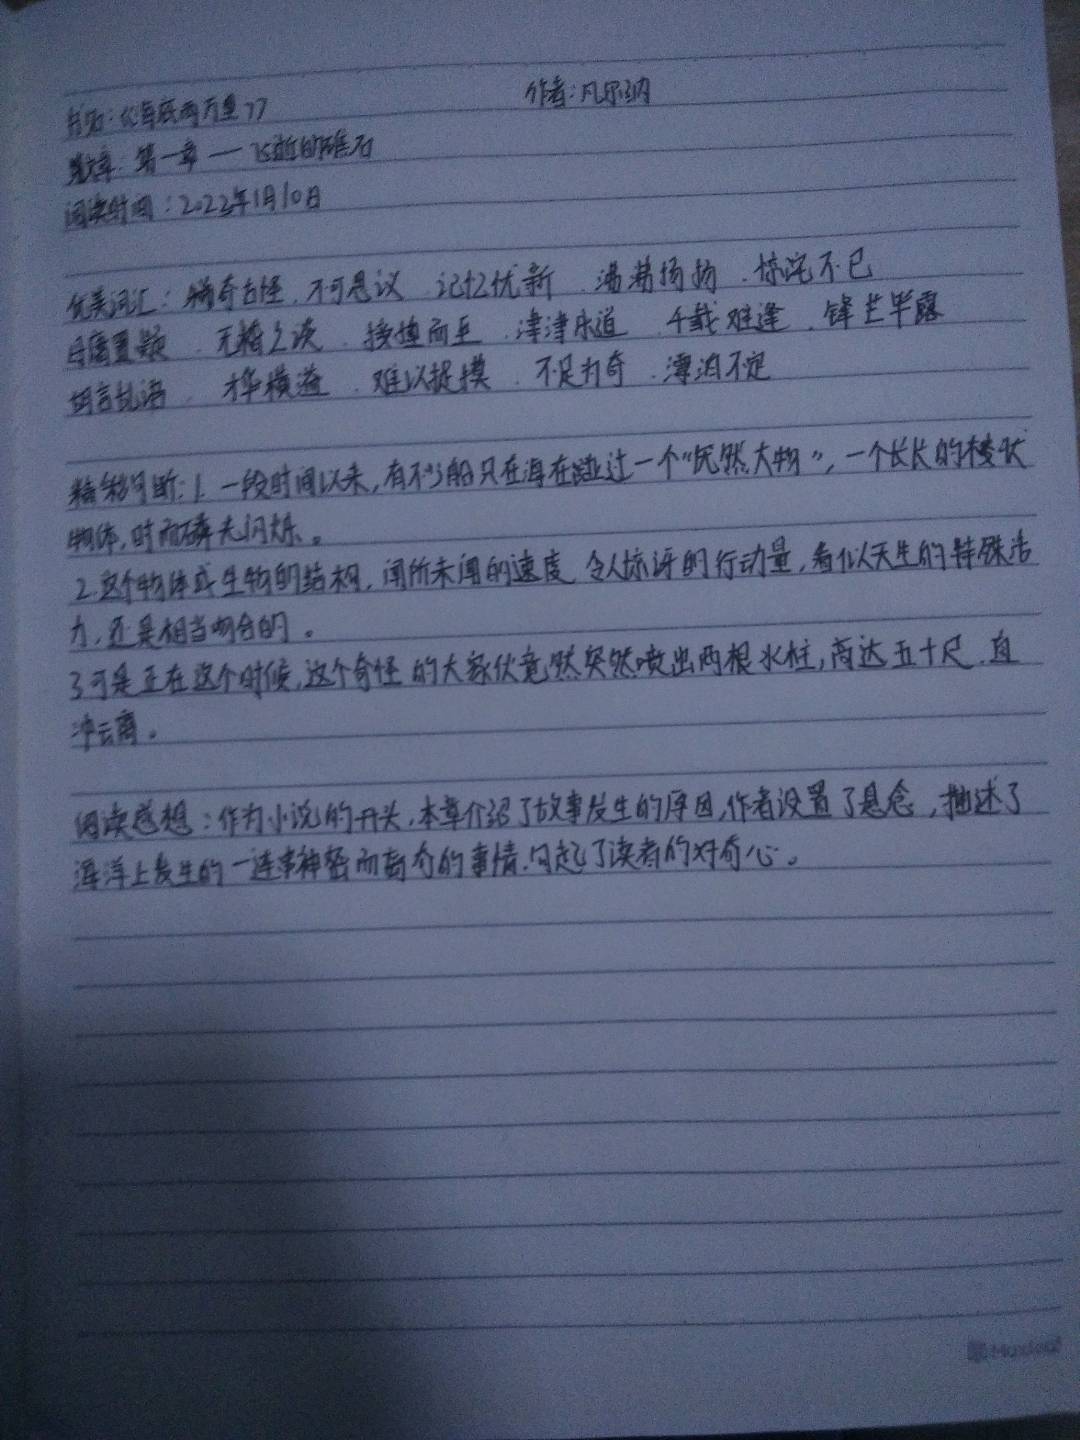 书名:《海底两万里》 作者:凡尔纳
章:第一章——飞逝的礁石
阅读时间:2023年1月10日
优美词汇:稀奇古怪、不可思议、记忆犹新、沸沸扬扬、惊诧不已
毋庸置疑、无稽之谈、接踵而至、津津乐道、千载难逢、锋芒毕露
胡言乱语、才华横溢、难以捉摸、不足为奇、漂泊不定
精彩片断:1.一段时间以来,有不少船只在海在碰过一个“庞然大物”,一个长长的梭状
物体,时而磷光闪烁。
2.这个物体或生物的结构,闻所未闻的速度,令人惊讶的行动量,看似天生的特殊活
力,还是相当吻合的。
3.可是正在这个时候,这个奇怪的大家伙竟然突然喷出两根水柱,高达五十尺,直
冲云霄。
阅读感想:作为小说的开头,本章介绍了故事发生的原因,作者设置了悬念,描述了
海洋上发生的一连串神秘而离奇的事情,勾起了读者的好奇心。